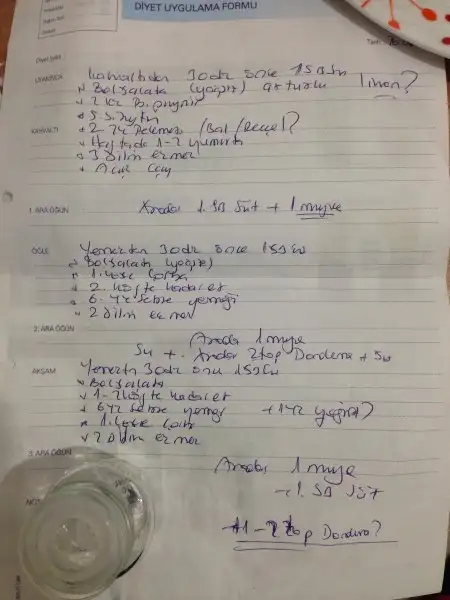 DİYET UYGULAMA FORMU
Tarih
UYANINCA
Kahvaltıdan 30dk önce 1 SB Su
Bol Salata (yağsız) Limon?
2 K.K. B. peynir
5 S. Zeytin
KAHVALTI
2 T.K Pekmez / Bal / Reçel?
Haftada 1-2 yumurta
3 dilim ekmek
Açık Çay
1. ARA ÖĞÜN
Arada 1 SB Süt + 1 meyve
ÖĞLE
Yemekten 30dk önce 1SB Su
Bol Salata (yağsız)
1. kase Çorba
2. köfte kadar et
6. YK Sebze yemeği
2 dilim ekmek
2. ARA ÖĞÜN
Arada 1 meyve
Su + Arada 2 top Dondurma + Su
AKŞAM
Yemekten 30dk önce 1SB Su
Bol Salata
1-2 köfte kadar et
6 YK Sebze yemeği + 1 YK yoğurt?
1. kase Çorba
2 dilim ekmek
3. ARA ÖĞÜN
Arada 1 meyve
1. SB Süt
NOT
+1-2 top Dondurma?